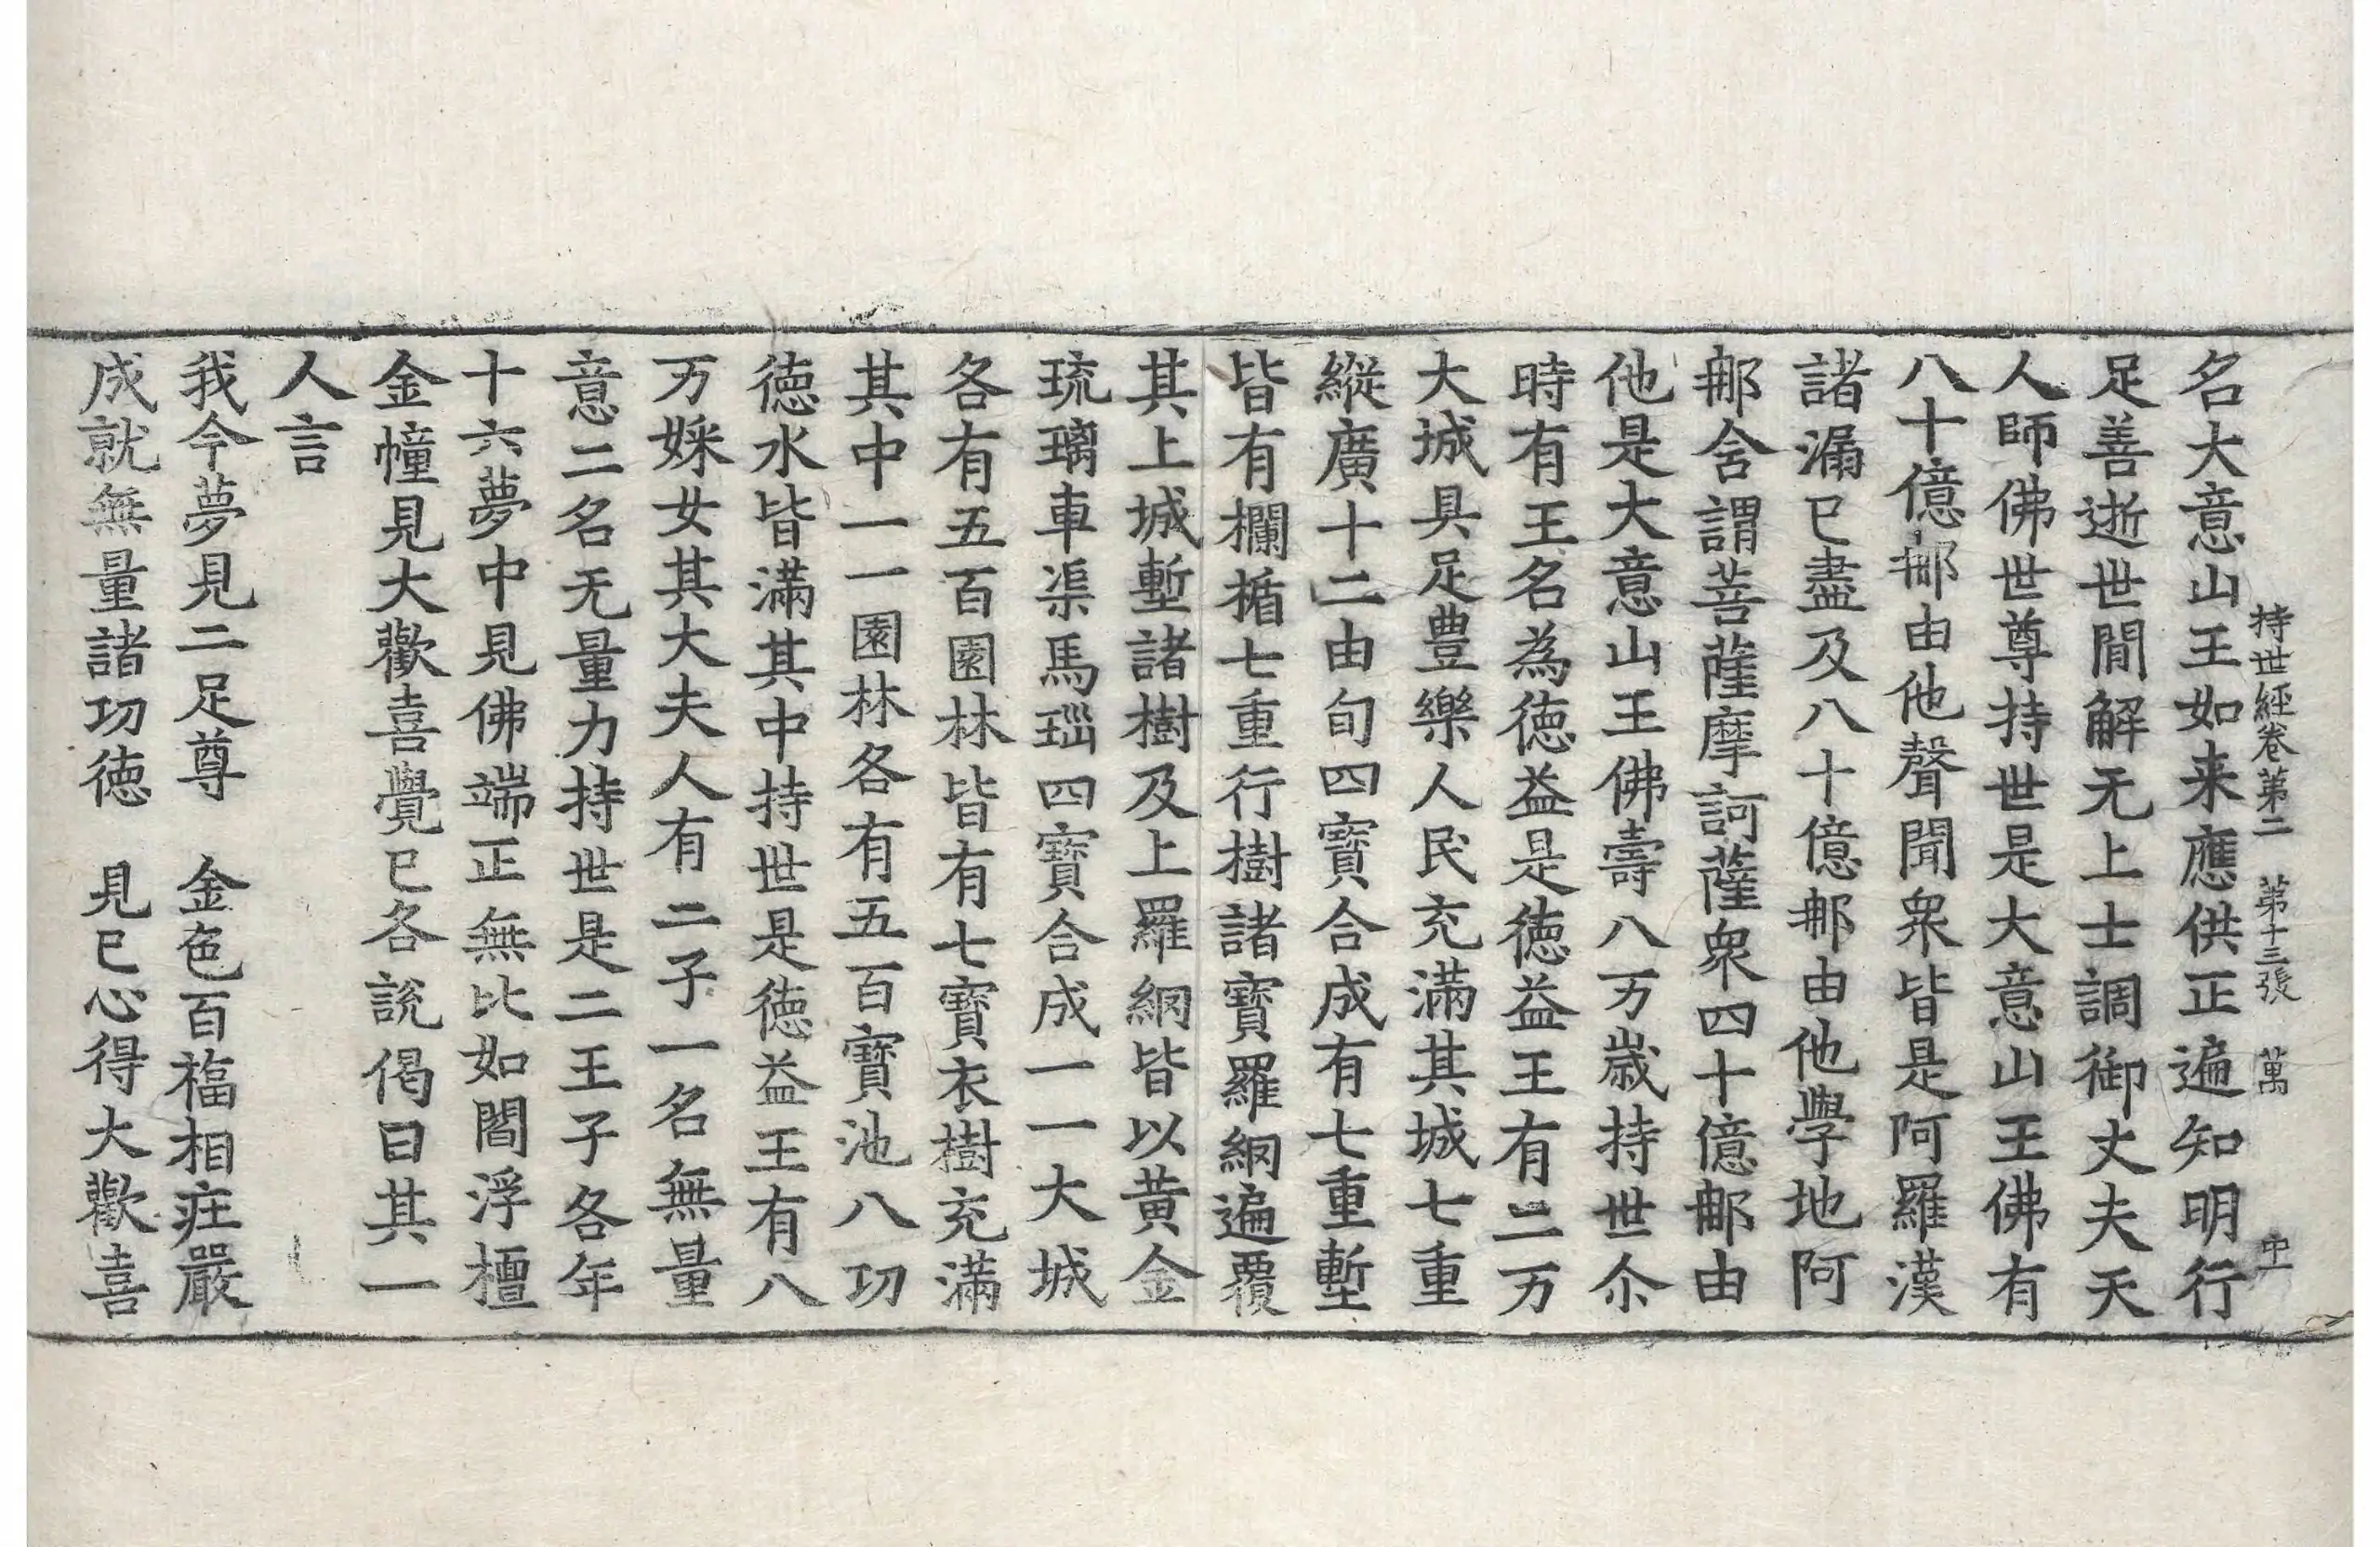 持世經卷第二　第十三張　萬　中
名大意山王如来應供正遍知明行
足善逝世閒解无上士調御丈夫天
人師佛世尊持世是大意山王佛有
八十億𨙻由他聲聞衆皆是阿羅漢
諸漏已盡及八十億𨙻由他學地阿
𨙻含謂菩薩摩訶薩衆四十億𨙻由
他是大意山王佛壽八万歳持世尒
時有王名為徳益是徳益王有二万
大城具足豊樂人民充滿其城七重
縱廣十二由旬四寶合成有七重塹
皆有欄楯七重行樹諸寶羅網遍覆
其上城塹諸樹及上羅網皆以黄金
琉璃車渠馬瑙四寶合成一一大城
各有五百園林皆有七寶衣樹充滿
其中一一園林各有五百寶池八功
徳水皆滿其中持世是徳益王有八
万婇女其大夫人有二子一名無量
意二名无量力持世是二王子各年
十六夢中見佛端正無比如閻浮檀
金幢見大歡喜覺已各說偈曰其一
人言
我今夢見二足尊　金色百福相㽵嚴
成就無量諸功徳　見已心得大歡喜